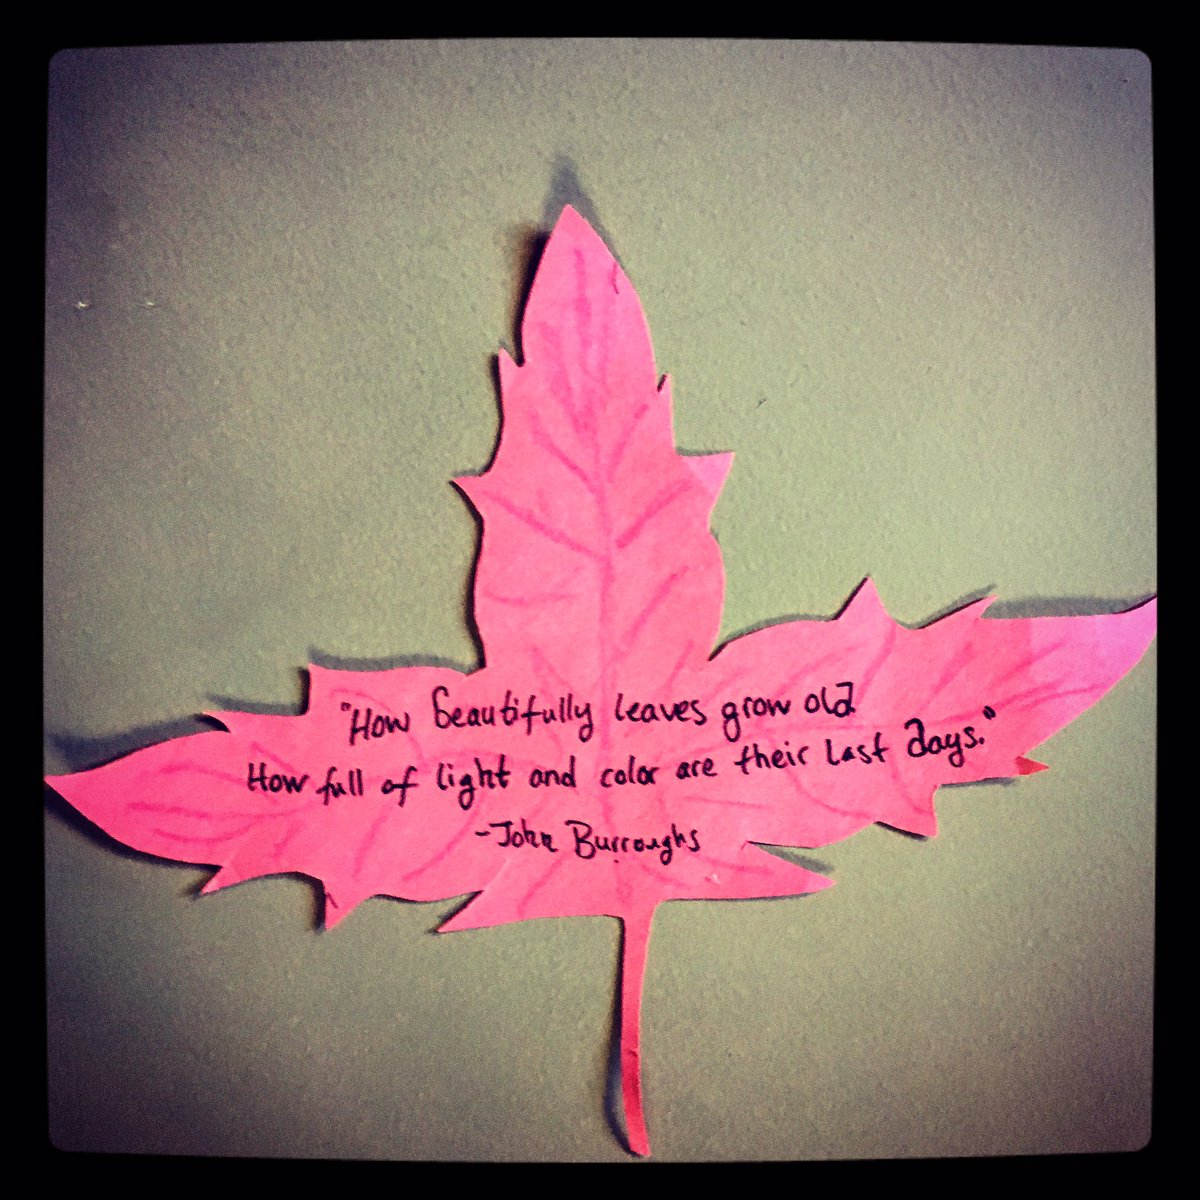 "How beautifully leaves grow old
How full of light and color are their last days."
-John Burroughs